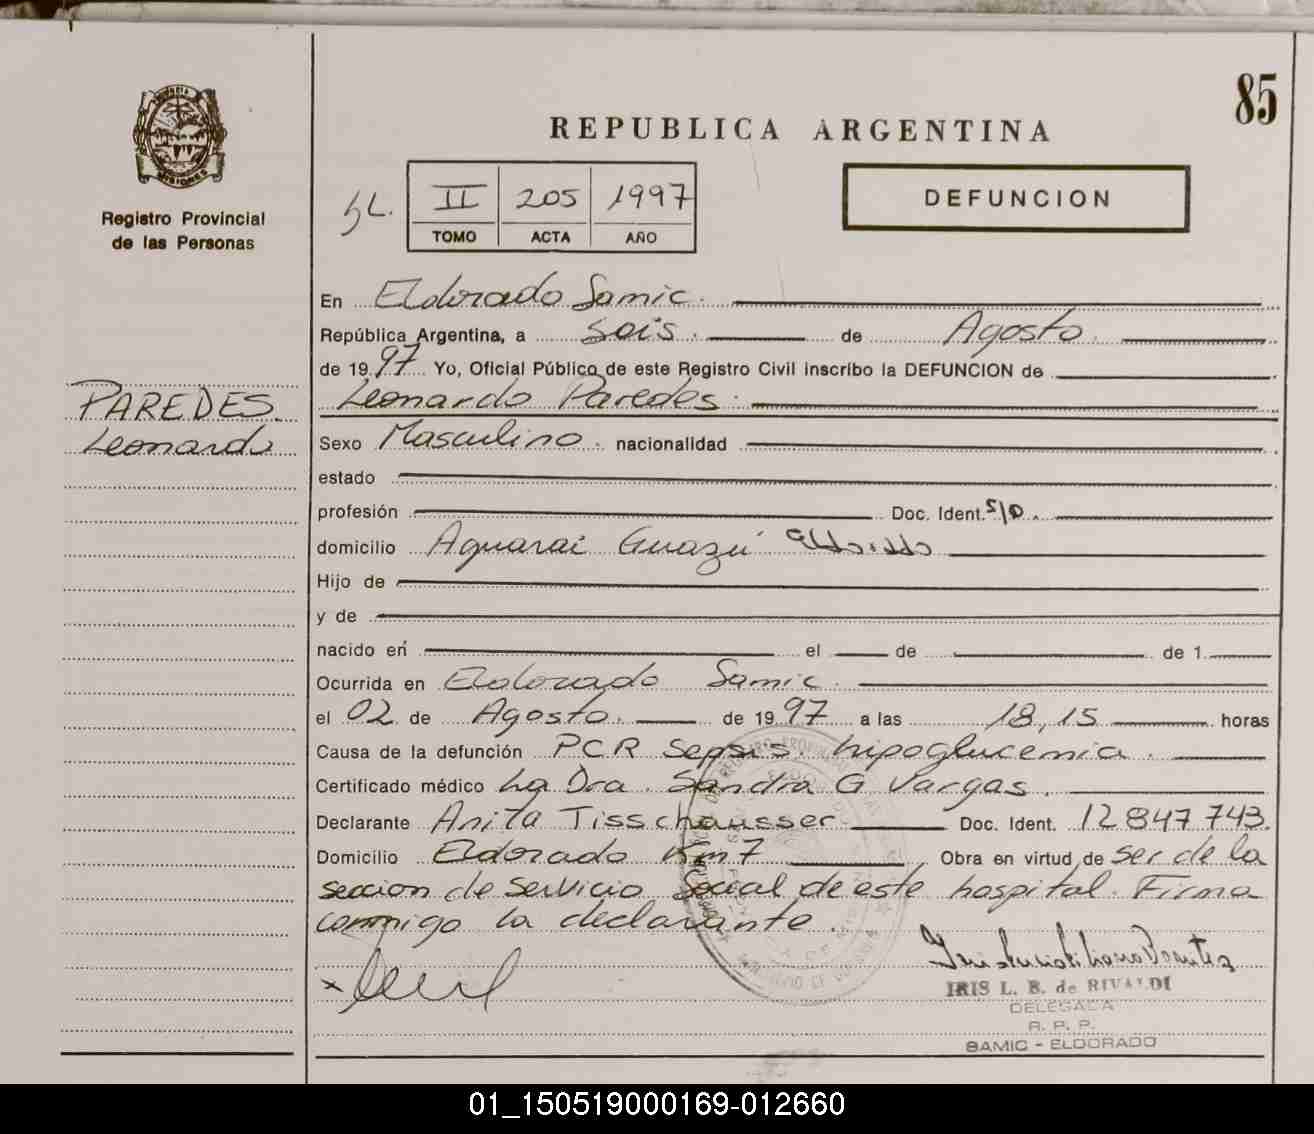 85
REPUBLICA ARGENTINA
MISIONES
Registro Provincial
de las Personas
II 205 1997
TOMO ACTA AÑO
DEFUNCION
En Eldorado Samic.
República Argentina, a seis. de Agosto.
de 1997 Yo, Oficial Público de este Registro Civil inscribo la DEFUNCION de
Leonardo Paredes.
PAREDES
Leonardo
Sexo Masculino. nacionalidad
estado
profesión Doc. Ident. S/D.
domicilio Aguarai Guazú
Hijo de
y de
nacido en el de de 1
Ocurrida en Eldorado Samic.
el 02 de Agosto. de 1997 a las 18,15 horas
Causa de la defunción PCR Sepsis. hipoglucemia.
Certificado médico La Dra. Sandra G Vargas.
Declarante Anita Tisschausser Doc. Ident. 12847743.
Domicilio Eldorado Km7 Obra en virtud de ser de la
seccion de Servicio Social de este hospital. Firma
conmigo la declarante.
IRIS L. B. de RIVALDI
DELEGADA
R. P. P.
SAMIC - ELDORADO
01_150519000169-012660